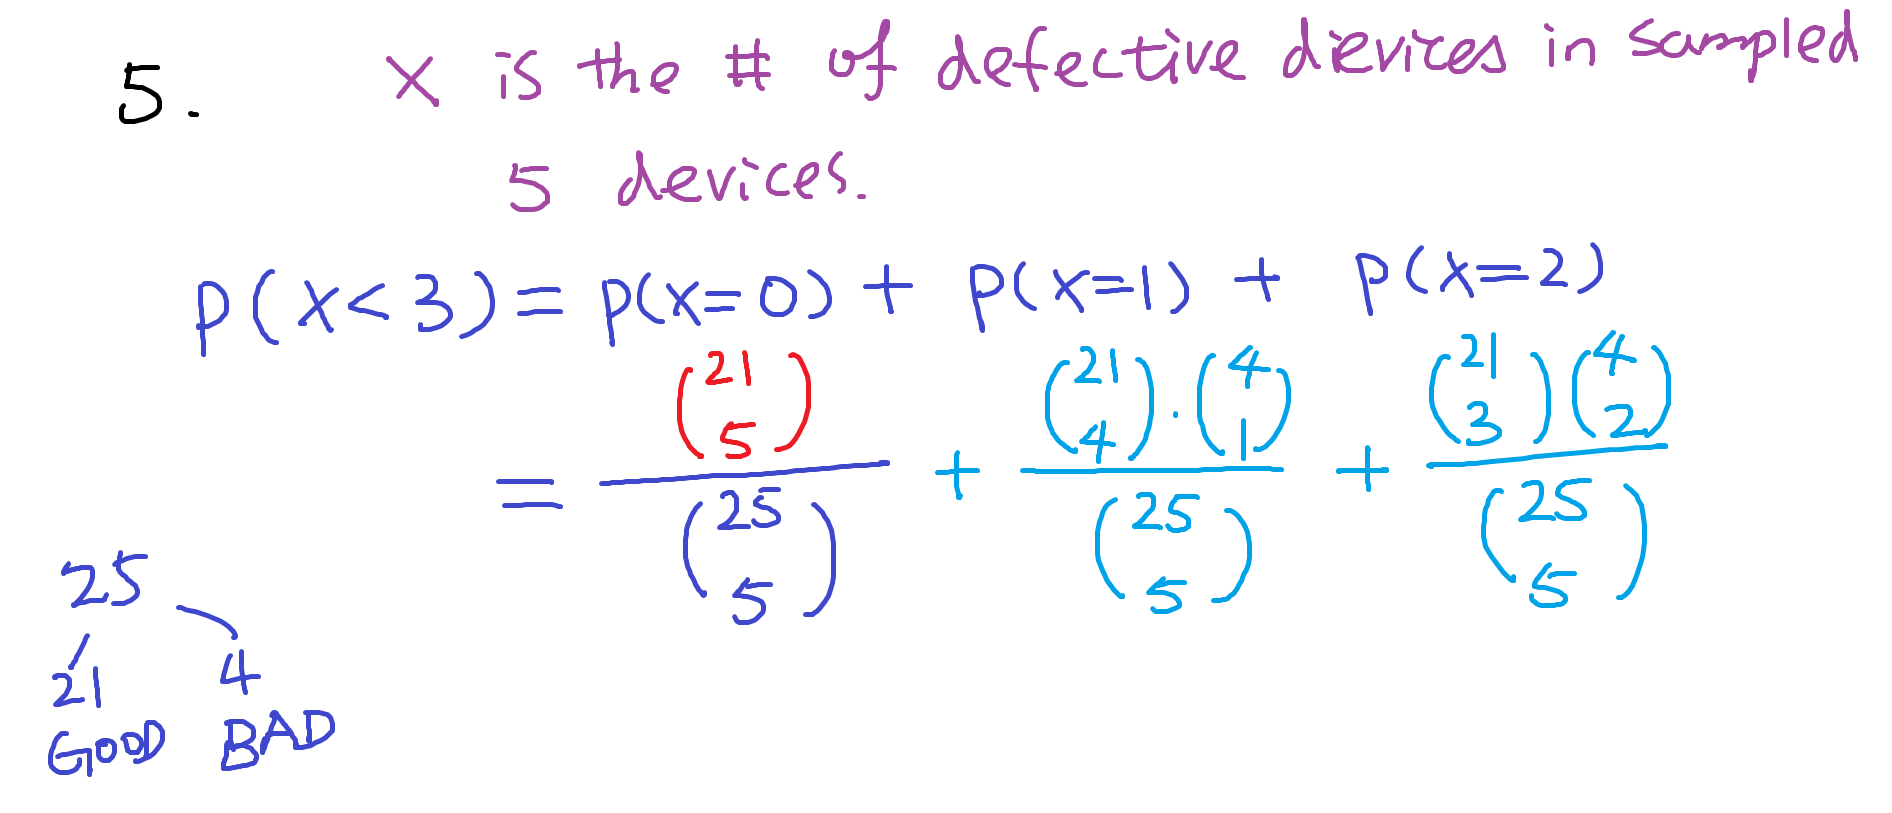 5. X is the # of defective dievices in sampled
5 devices.
P(X<3) = P(X=0) + P(X=1) + P(X=2)
= \frac{\binom{21}{5}}{\binom{25}{5}} + \frac{\binom{21}{4} \cdot \binom{4}{1}}{\binom{25}{5}} + \frac{\binom{21}{3}\binom{4}{2}}{\binom{25}{5}}
25
21 4
GOOD BAD